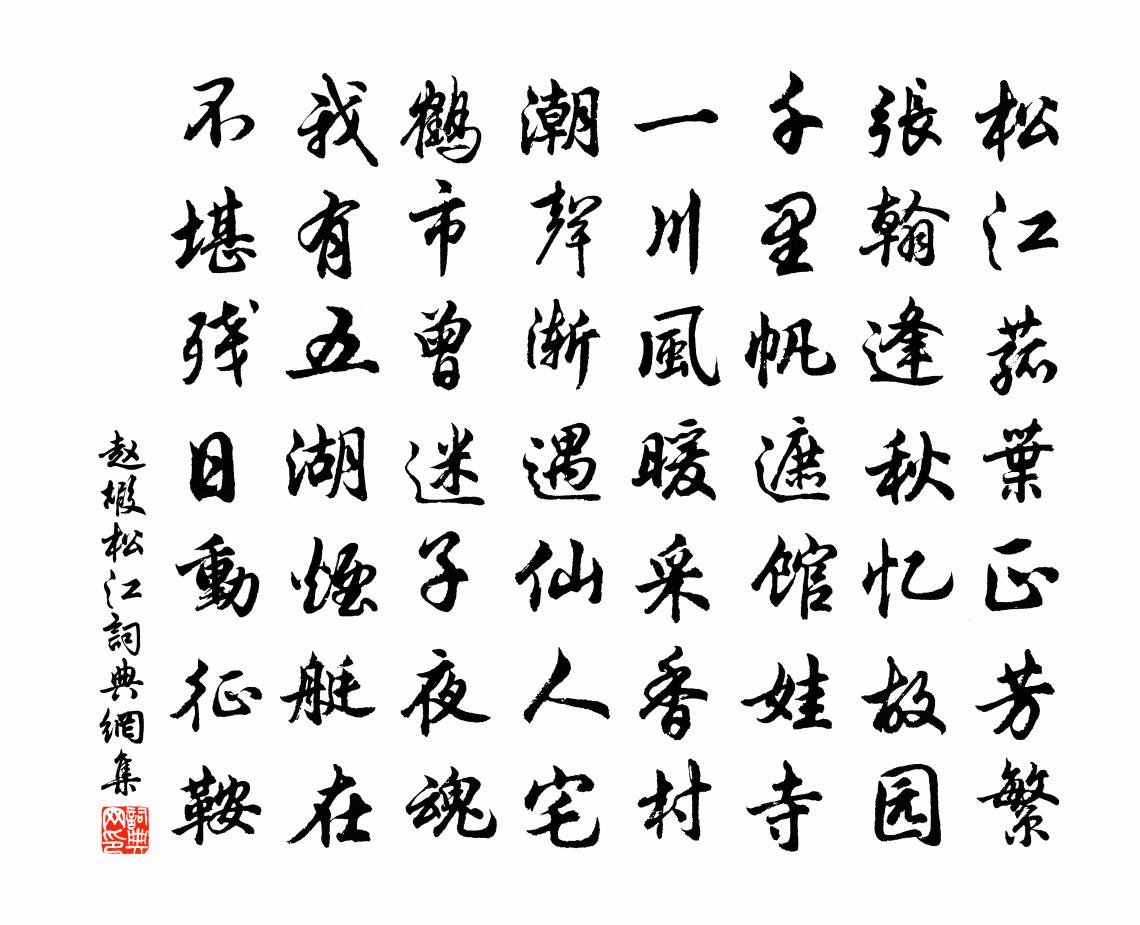 松江菰葉正芳繁
張翰逢秋忆故园
千里帆遮館娃寺
一川風暖采香村
潮聲漸遇仙人宅
鶴市曾迷子夜魂
我有五湖煙艇在
不堪殘日動征鞍
赵嘏松江詞典網集
詞典网印